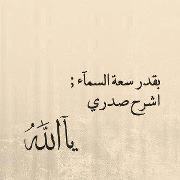 بقدر سعة السمآء ;
اشرح صدري
يآ اللَّهُ